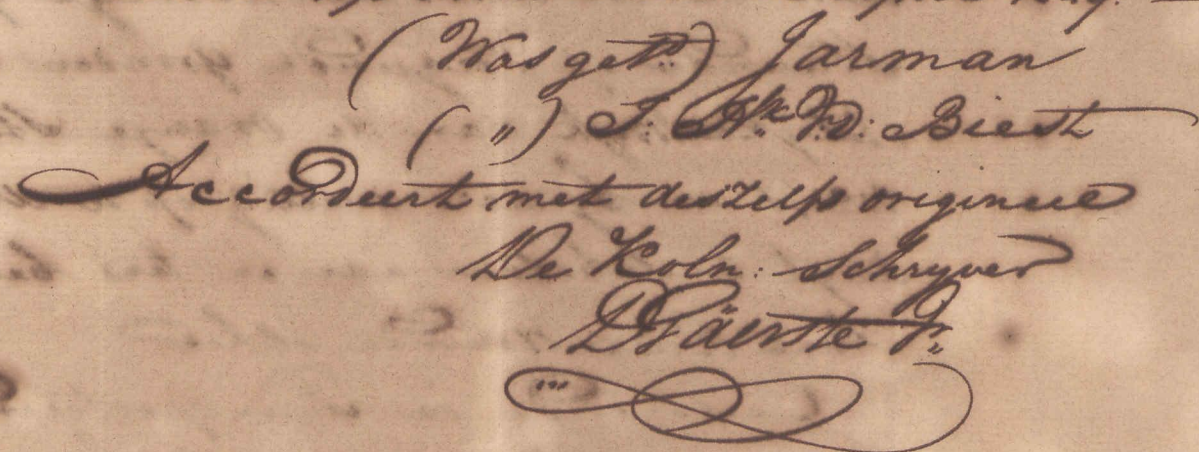 (Was get:) Jarman
( „ ) J. Hk. V. D: Biest
Accordeert met deszelfs origineel
De Koln: Schryver
Päerste Jr.